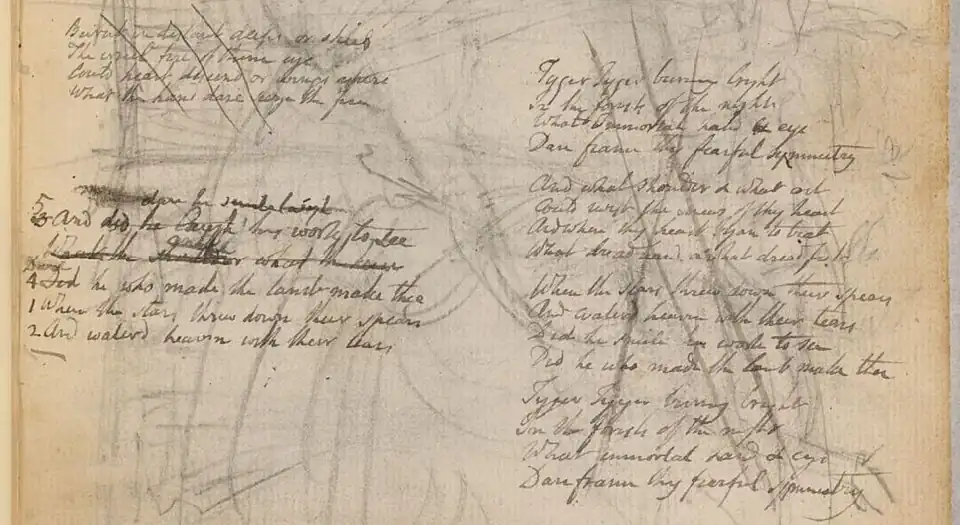 Burnt in distant deeps or skies
The cruel fire of thine eye
Could heart descend or wings aspire
What the hand dare seize the fire
5 dare he smile laugh
3 And did he laugh his work to see
What the shoulder what the knee
ankle
Dare
4 Did he who made the lamb make thee
1 When the stars threw down their spears
2 And waterd heaven with their tears
Tyger Tyger burning bright
In the forests of the night
What immortal hand & eye
Dare frame thy fearful symmetry
And what shoulder & what art
Could twist the sinews of thy heart
And when thy heart began to beat
What dread hand & what dread feet
When the stars threw down their spears
And waterd heaven with their tears
Did he smile his work to see
Did he who made the lamb make thee
Tyger Tyger burning bright
In the forests of the night
What immortal hand & eye
Dare frame thy fearful symmetry